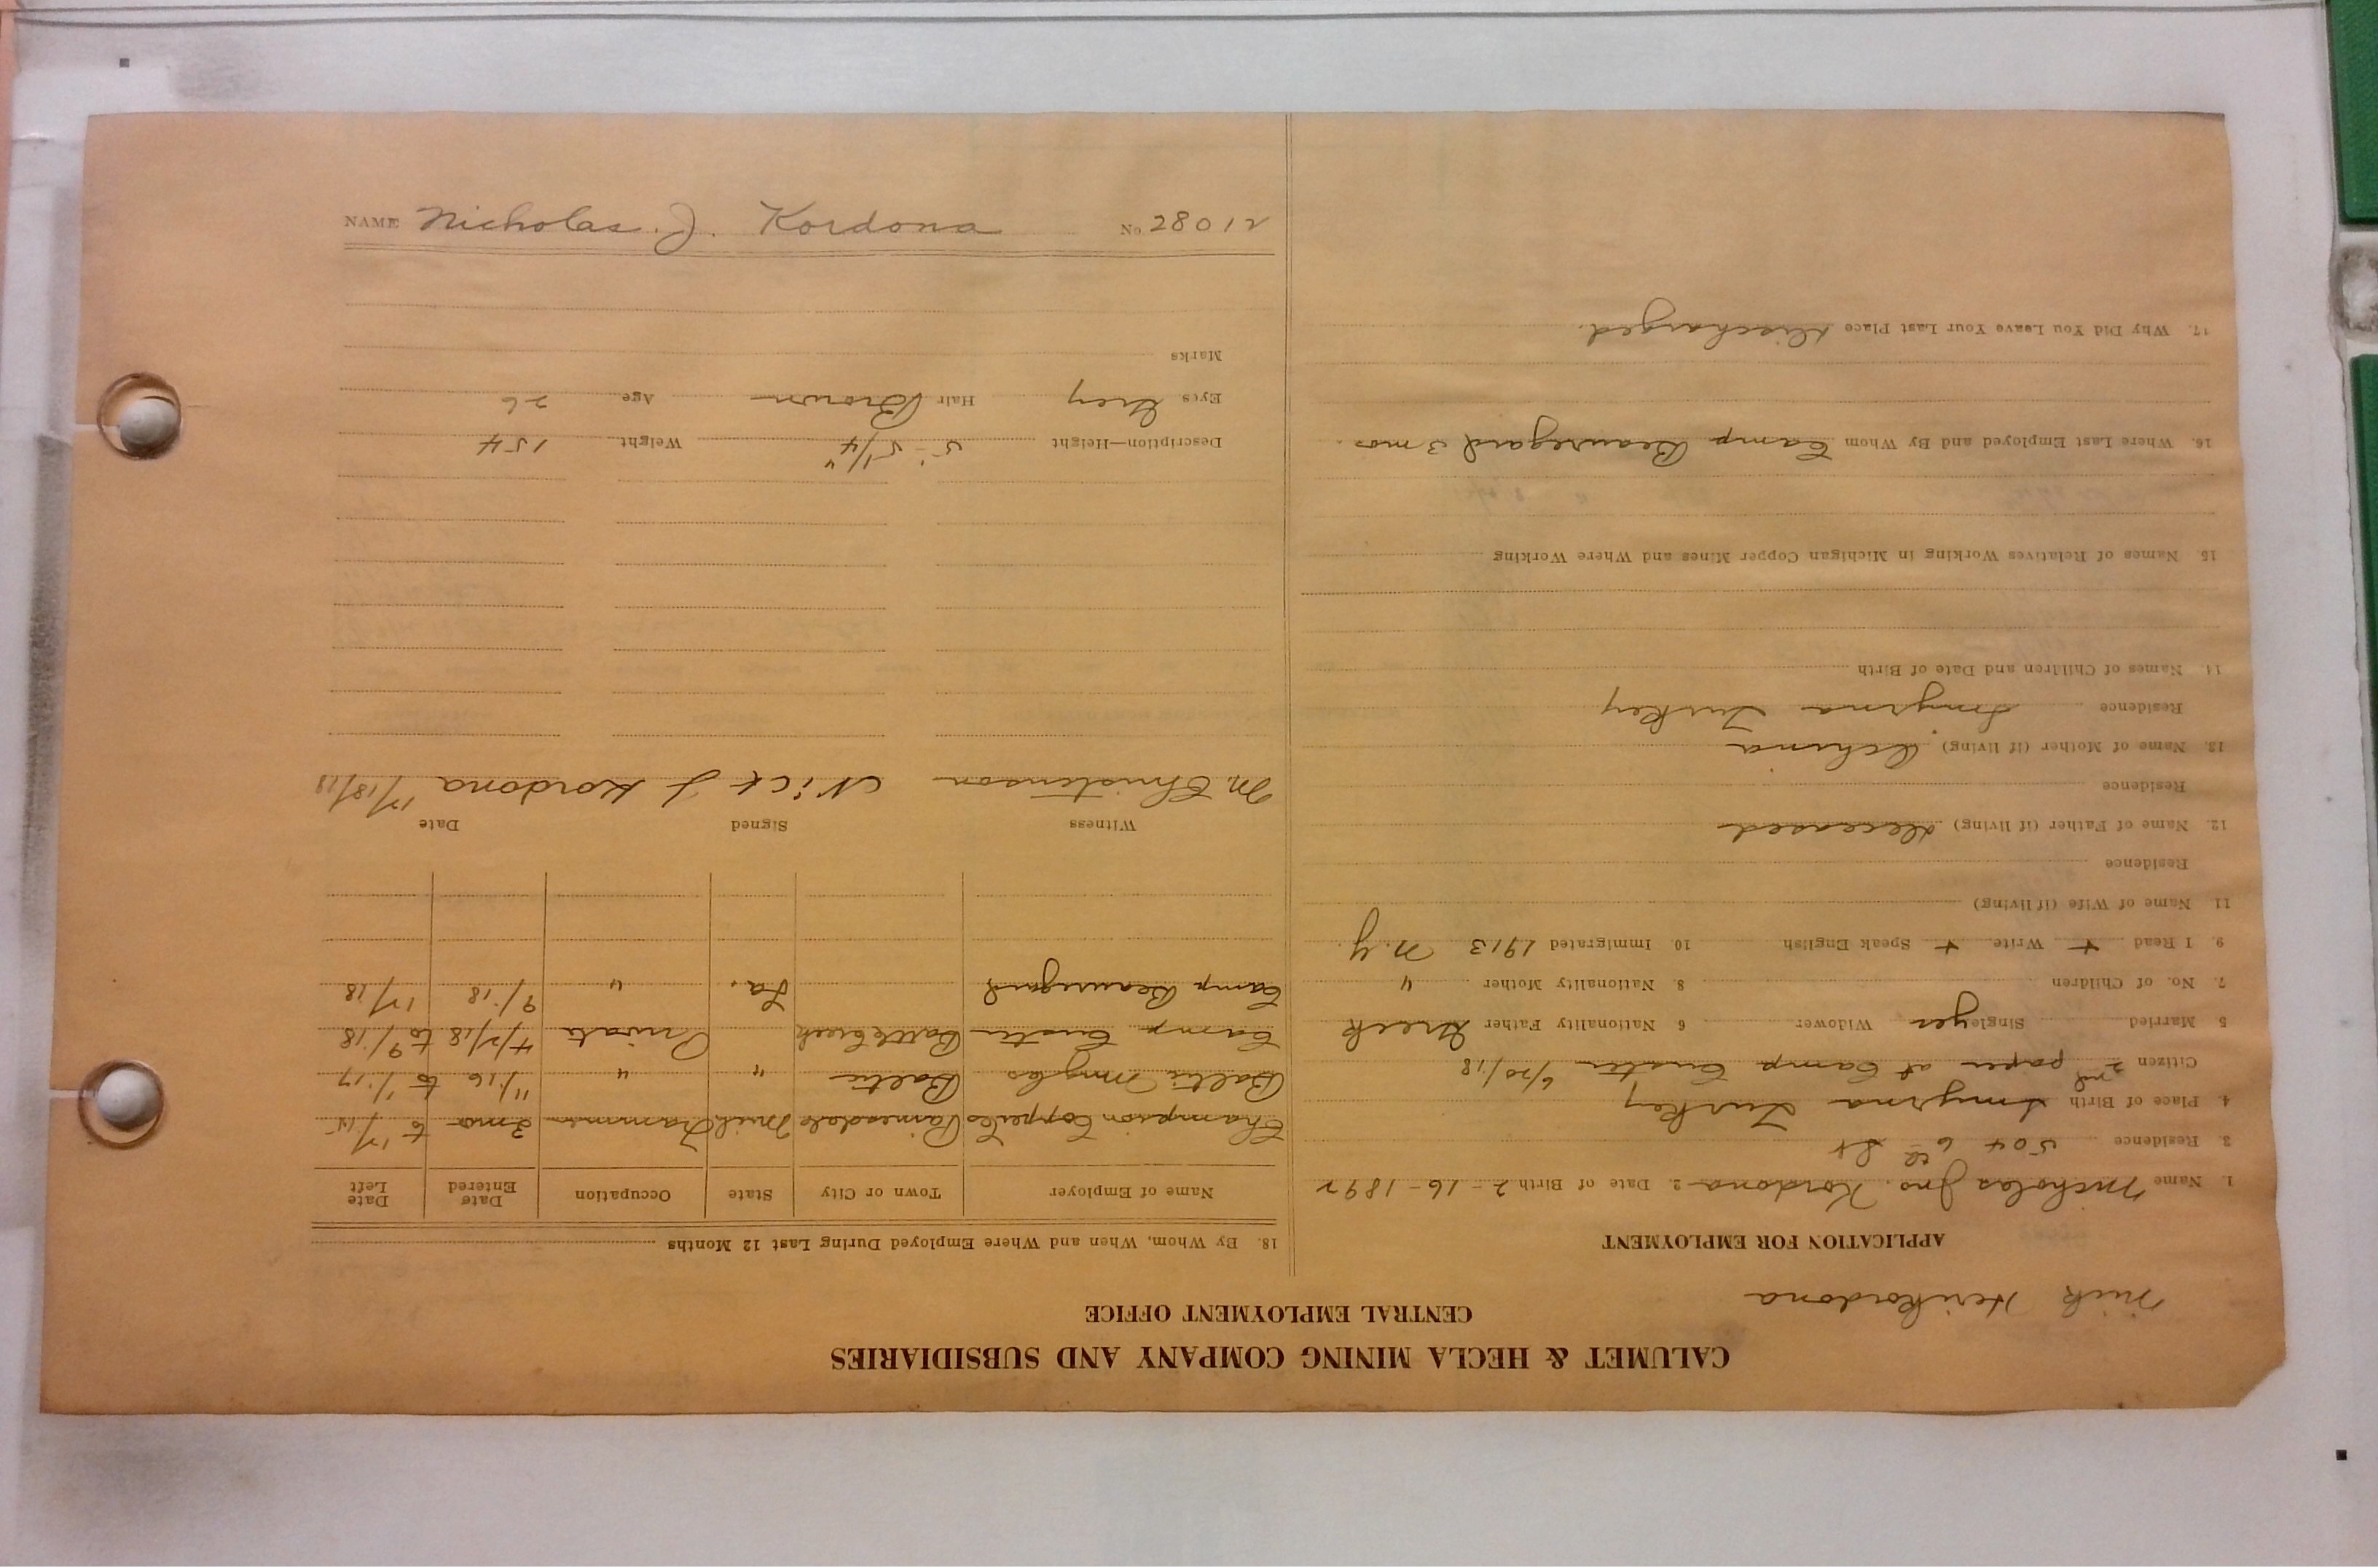 CALUMET & HECLA MINING COMPANY AND SUBSIDIARIES
CENTRAL EMPLOYMENT OFFICE
Nick Herikordona
APPLICATION FOR EMPLOYMENT
1. Name Nicholas Jno. Kordona 2. Date of Birth 2-16-1892
3. Residence 504 6th St
4. Place of Birth Smyrna Turkey
Citizen 2nd paper at Camp Custer 6/20/18
5 Married Single yes Widower 6 Nationality Father Greek
7. No. of Children 8. Nationality Mother "
9. I Read + Write + Speak English 10. Immigrated 1913 N.Y.
11. Name of Wife (if living)
Residence
12. Name of Father (if living) deceased
Residence
13. Name of Mother (if living)
Residence Smyrna Turkey
14. Names of Children and Date of Birth
15 Names of Relatives Working in Michigan Copper Mines and Where Working
16. Where Last Employed and By Whom Camp Beauregard 3 mos.
17. Why Did You Leave Your Last Place discharged.
18. By Whom, When and Where Employed During Last 12 Months
Name of Employer Town or City State Occupation Date Entered Date Left
Champion Copper Co Painesdale Mich Trammer 3 mo to 12/15
Baltic Baltic " " 11/16 to 1/17
Camp Custer Battle Creek Private 4/2/18 to 9/18
Camp Beauregard La. " 9/18 12/18
Witness Signed Date
M. Christenson Nick J Kordona 12/18/18
Description—Height 5' 5 1/4" Weight 154
Eyes Grey Hair Brown Age 26
Marks
NAME Nicholas. J. Kordona No. 28012